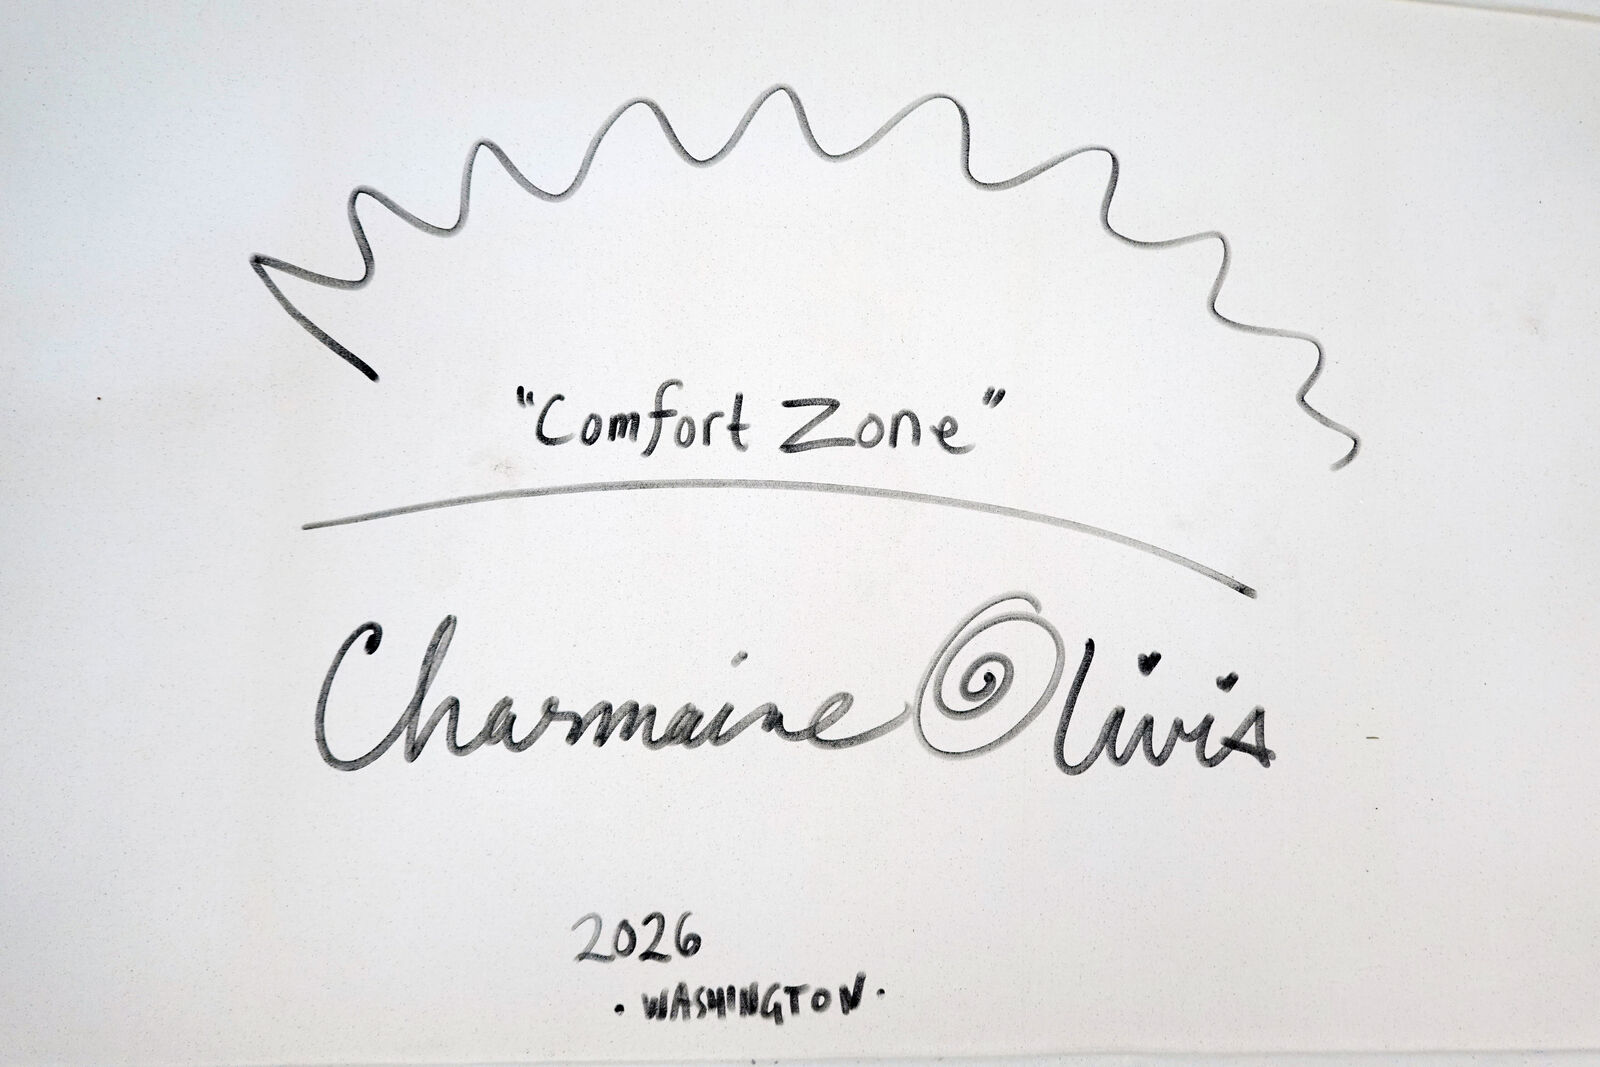 "Comfort Zone"
Charmaine Olivia
2026
· WASHINGTON ·